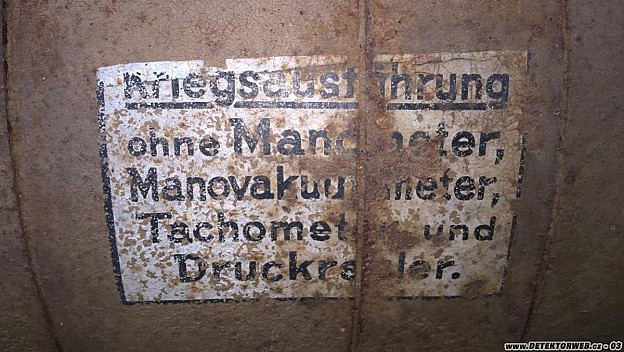 Kriegsausführung
ohne Manometer,
Manovakuumeter,
Tachometer und
Druckregler.
www.DETEKTORWEB.cz - 03